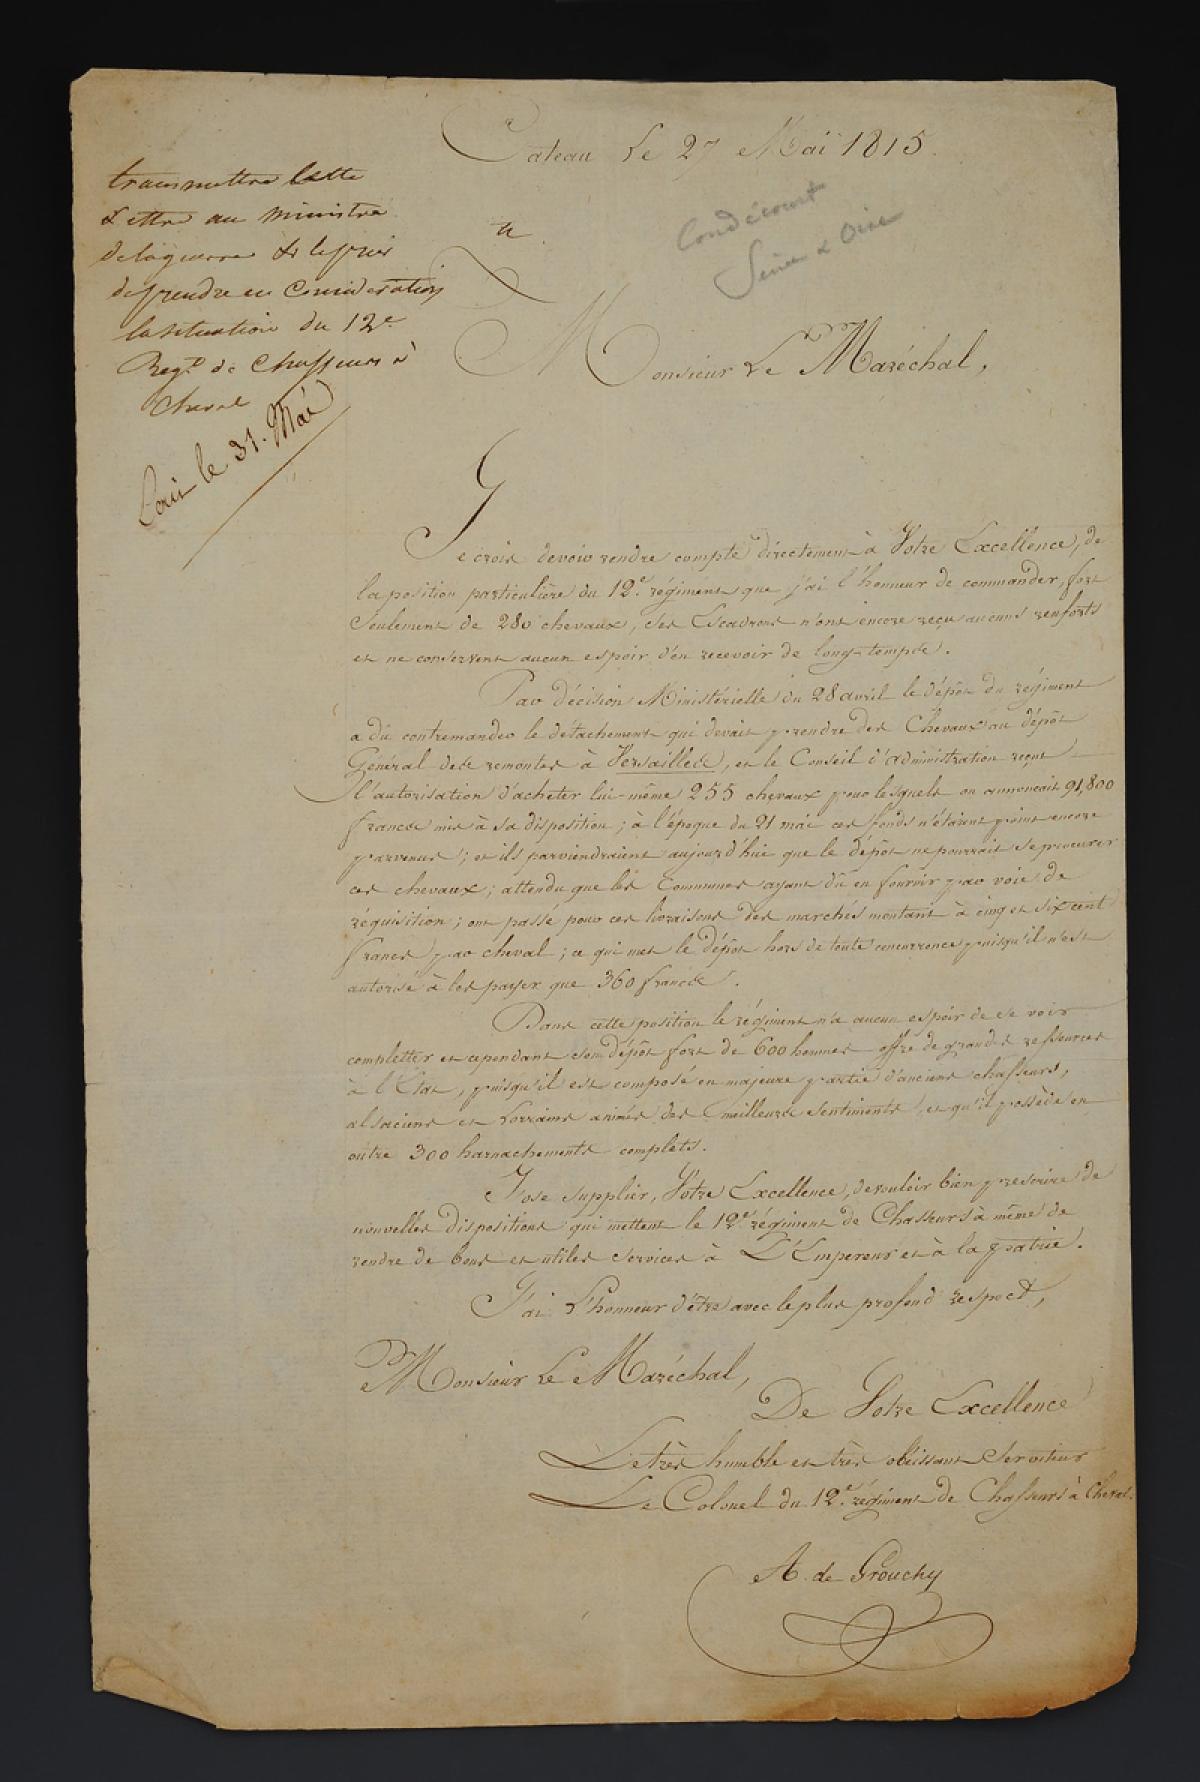 Cateau Le 27 Mai 1815.
transmettre cette
Lettre au ministre
de la guerre & le prier
de prendre en Consideration
la situation du 12e.
Regt. de Chasseurs à
cheval
Ecrit le 31. Mai
Condécourt
Seine & Oise
Monsieur Le Maréchal,
Je crois devoir rendre compte directement à Votre Excellence, de
la position particulière du 12e. régiment que j'ai l'honneur de commander, fort
Seulement de 280 chevaux, ses Escadrons n'ont encore reçu aucuns renforts
et ne conservent aucun espoir d'en recevoir de long-temps.
Par décision Ministérielle du 28 avril le dépôt du régiment
a dû contremander le détachement qui devait prendre des Chevaux au dépôt
Général des remontes à Versailles, et le Conseil d'administration reçut
l'autorisation d'acheter lui-même 255 chevaux pour lesquels on annoncait 91,800
francs mis à sa disposition; à l'époque du 21 mai ces fonds n'étaient point encore
parvenus; et ils parviendraient aujourd'hui que le dépôt ne pourrait se procurer
ces chevaux; attendu que les Communes ayant dû en fournir par voie de
réquisition; ont passé pour ces livraisons des marchés montant à cinq et six cent
francs par cheval; ce qui met le dépôt hors de toute concurrence puisqu'il n'est
autorisé à les payer que 360 francs.
Dans cette position le régiment n'a aucun espoir de se voir
completter et cependant son dépôt fort de 600 hommes offre de grandes ressources
à l'Etat, puisqu'il est composé en majeure partie d'anciens chasseurs,
alsaciens et Lorrains animés des meilleurs sentiments, et qu'il possède en
outre 300 harnachements complets.
J'ose supplier, Votre Excellence, de vouloir bien prescrire de
nouvelles dispositions qui mettent le 12e. régiment de Chasseurs à même de
rendre de bons et utiles services à L'Empereur et à la patrie.
J'ai L'honneur d'être avec le plus profond respect,
Monsieur Le Maréchal,
De Votre Excellence
Le très humble et très obéissant Serviteur
Le Colonel du 12e. régiment de Chasseurs à Cheval.
A. de Grouchy